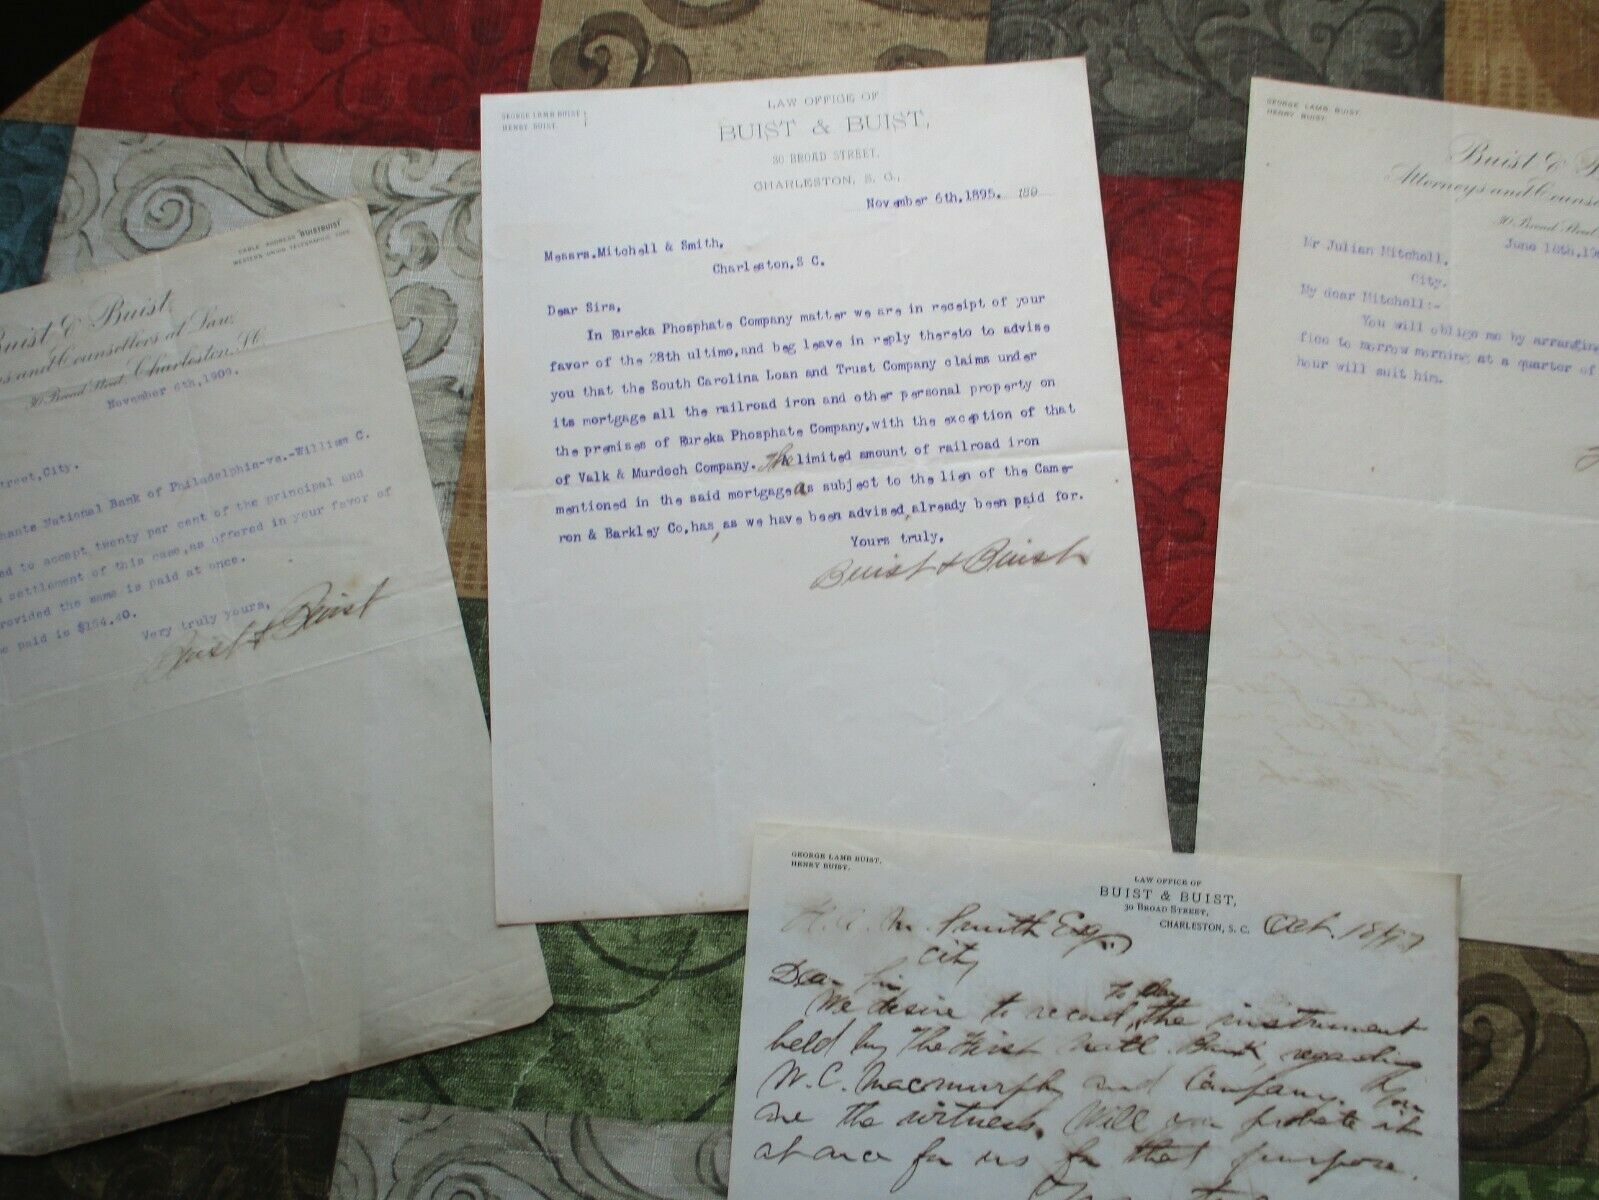 CABLE ADDRESS "BUISTBUIST"
WESTERN UNION TELEGRAPHIC CODE.
Buist & Buist,
s and Counsellors at Law,
30 Broad Street, Charleston, S.C.
November 6th,1900.
treet,City.
hants National Bank of Philadelphia-vs.-William C.
ed to accept twenty per cent of the principal and
settlement of this case,as offered in your favor of
rovided the same is paid at once.
e paid is $154.40.
Very truly yours,
Buist & Buist
GEORGE LAMB BUIST
HENRY BUIST.
LAW OFFICE OF
BUIST & BUIST,
30 BROAD STREET,
CHARLESTON, S. C.,
November 6th,1895. 189
Messrs.Mitchell & Smith,
Charleston,S C.
Dear Sirs,
In Eureka Phosphate Company matter we are in receipt of your
favor of the 28th ultimo,and beg leave in reply thereto to advise
you that the South Carolina Loan and Trust Company claims under
its mortgage all the railroad iron and other personal property on
the premises of Eureka Phosphate Company,with the exception of that
of Valk & Murdoch Company. The limited amount of railroad iron
mentioned in the said mortgage as subject to the lien of the Came-
ron & Barkley Co,has, as we have been advised,already been paid for.
Yours truly,
Buist & Buist
GEORGE LAMB BUIST.
HENRY BUIST.
Buist & B
Attorneys and Counse
30 Broad Street
June 18th,190
Mr Julian Mitchell,
City.
My dear Mitchell:-
You will oblige me by arranging
fice to morrow morning at a quarter of
hour will suit him.
GEORGE LAMB BUIST,
HENRY BUIST.
LAW OFFICE OF
BUIST & BUIST,
30 BROAD STREET,
CHARLESTON, S. C.
Oct. 18
H. A. M. Smith Esq.
City
Dear Sir
We desire to record to day the instrument
held by The First Natl. Bank, regarding
W. C. Macmurphy and Company. You
are the witness. Will you probate it
at once for us for that purpose.